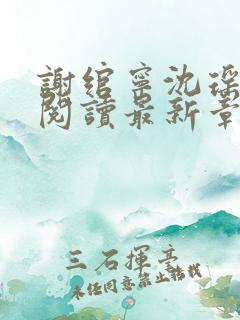 謝綰寧沈瑤
閱讀最新章
三石揮亭
未經同意禁止轉載